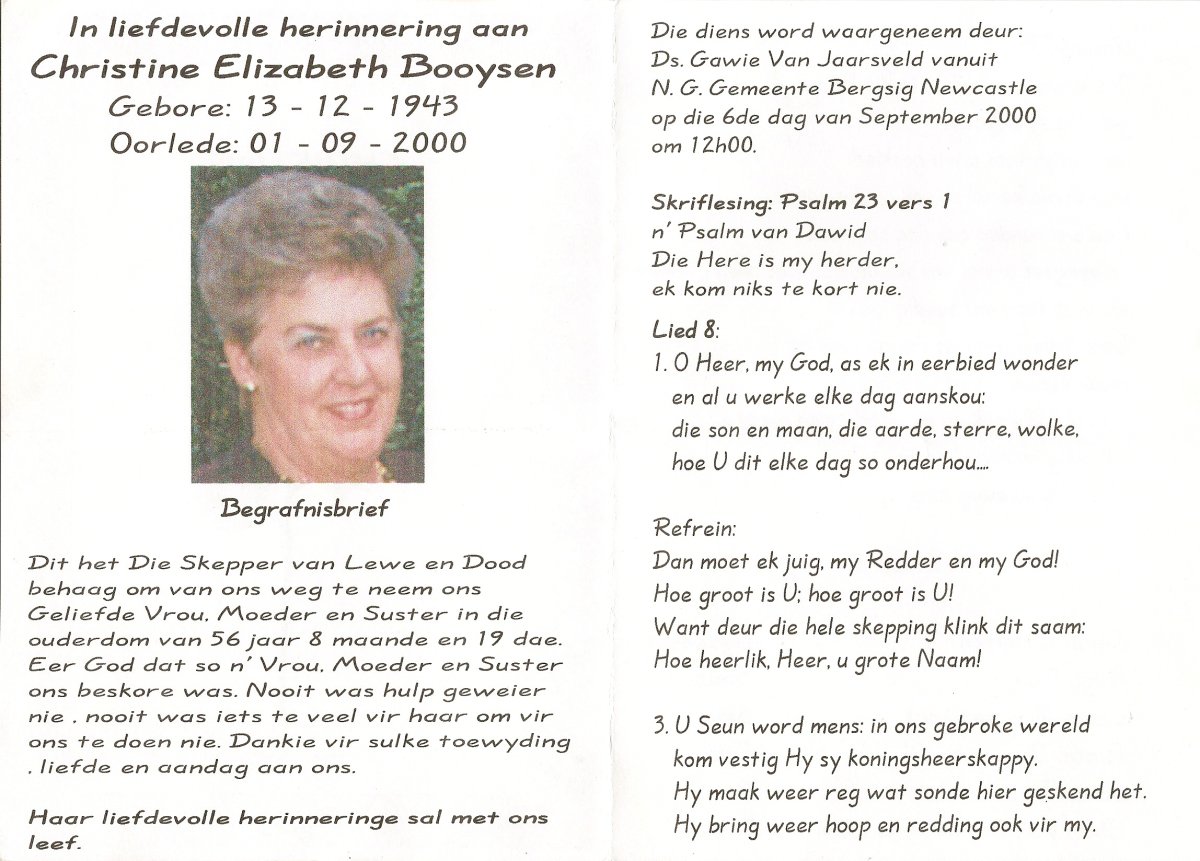 In liefdevolle herinnering aan
Christine Elizabeth Booysen
Gebore: 13 - 12 - 1943
Oorlede: 01 - 09 - 2000
Begrafnisbrief
Dit het Die Skepper van Lewe en Dood
behaag om van ons weg te neem ons
Geliefde Vrou, Moeder en Suster in die
ouderdom van 56 jaar 8 maande en 19 dae.
Eer God dat so n' Vrou, Moeder en Suster
ons beskore was. Nooit was hulp geweier
nie , nooit was iets te veel vir haar om vir
ons te doen nie. Dankie vir sulke toewyding
, liefde en aandag aan ons.
Haar liefdevolle herinneringe sal met ons
leef.
Die diens word waargeneem deur:
Ds. Gawie Van Jaarsveld vanuit
N. G. Gemeente Bergsig Newcastle
op die 6de dag van September 2000
om 12h00.
Skriflesing: Psalm 23 vers 1
n' Psalm van Dawid
Die Here is my herder,
ek kom niks te kort nie.
Lied 8:
1. O Heer, my God, as ek in eerbied wonder
en al u werke elke dag aanskou:
die son en maan, die aarde, sterre, wolke,
hoe U dit elke dag so onderhou....
Refrein:
Dan moet ek juig, my Redder en my God!
Hoe groot is U; hoe groot is U!
Want deur die hele skepping klink dit saam:
Hoe heerlik, Heer, u grote Naam!
3. U Seun word mens: in ons gebroke wereld
kom vestig Hy sy koningsheerskappy.
Hy maak weer reg wat sonde hier geskend het.
Hy bring weer hoop en redding ook vir my.